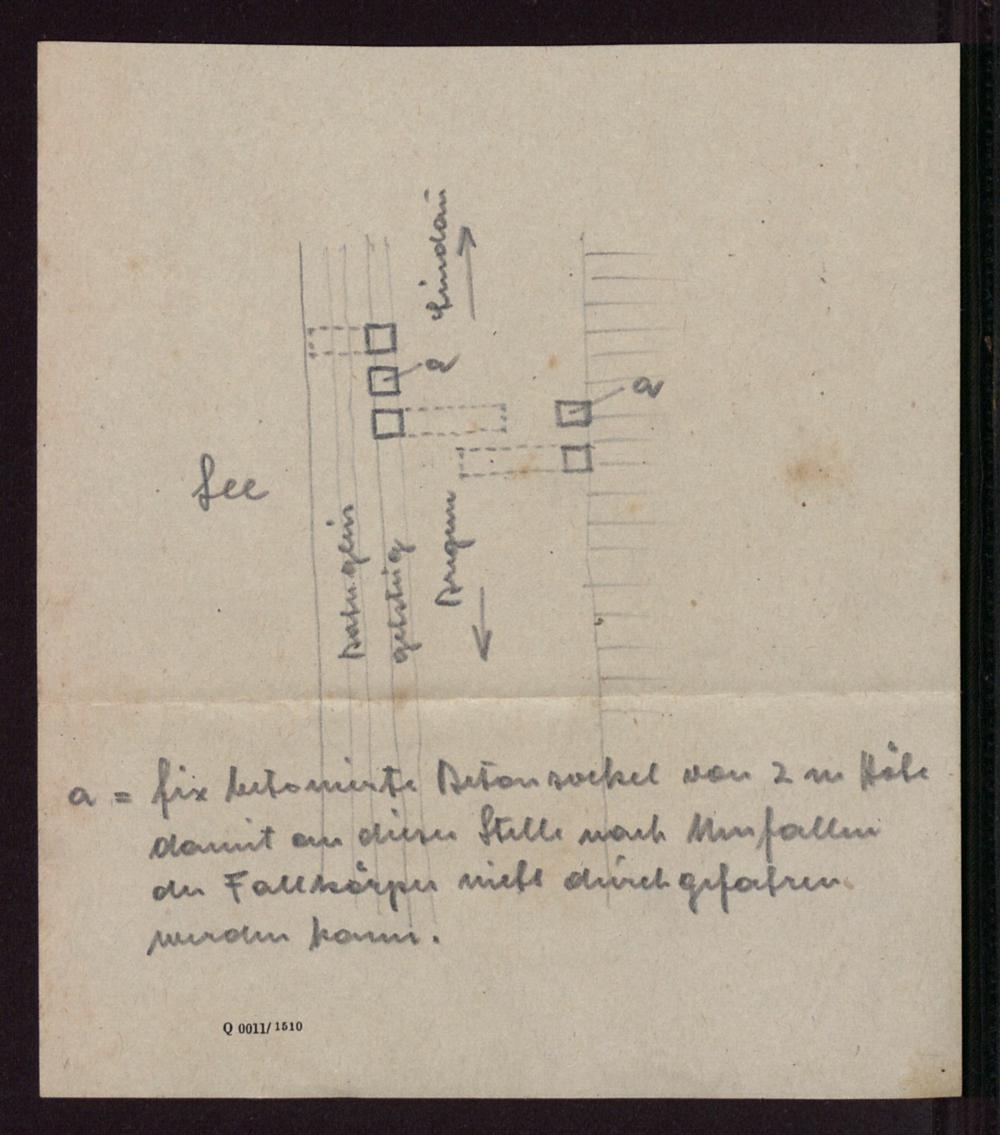 Lindau
a
a
See
Bahngleis
gehsteig
Bregenz
a = fix betonierte Betonsockel von 2 m Höhe
damit an dieser Stelle nach Umfallen
der Fallkörper nicht durchgefahren
werden kann.
Q 0011/1510